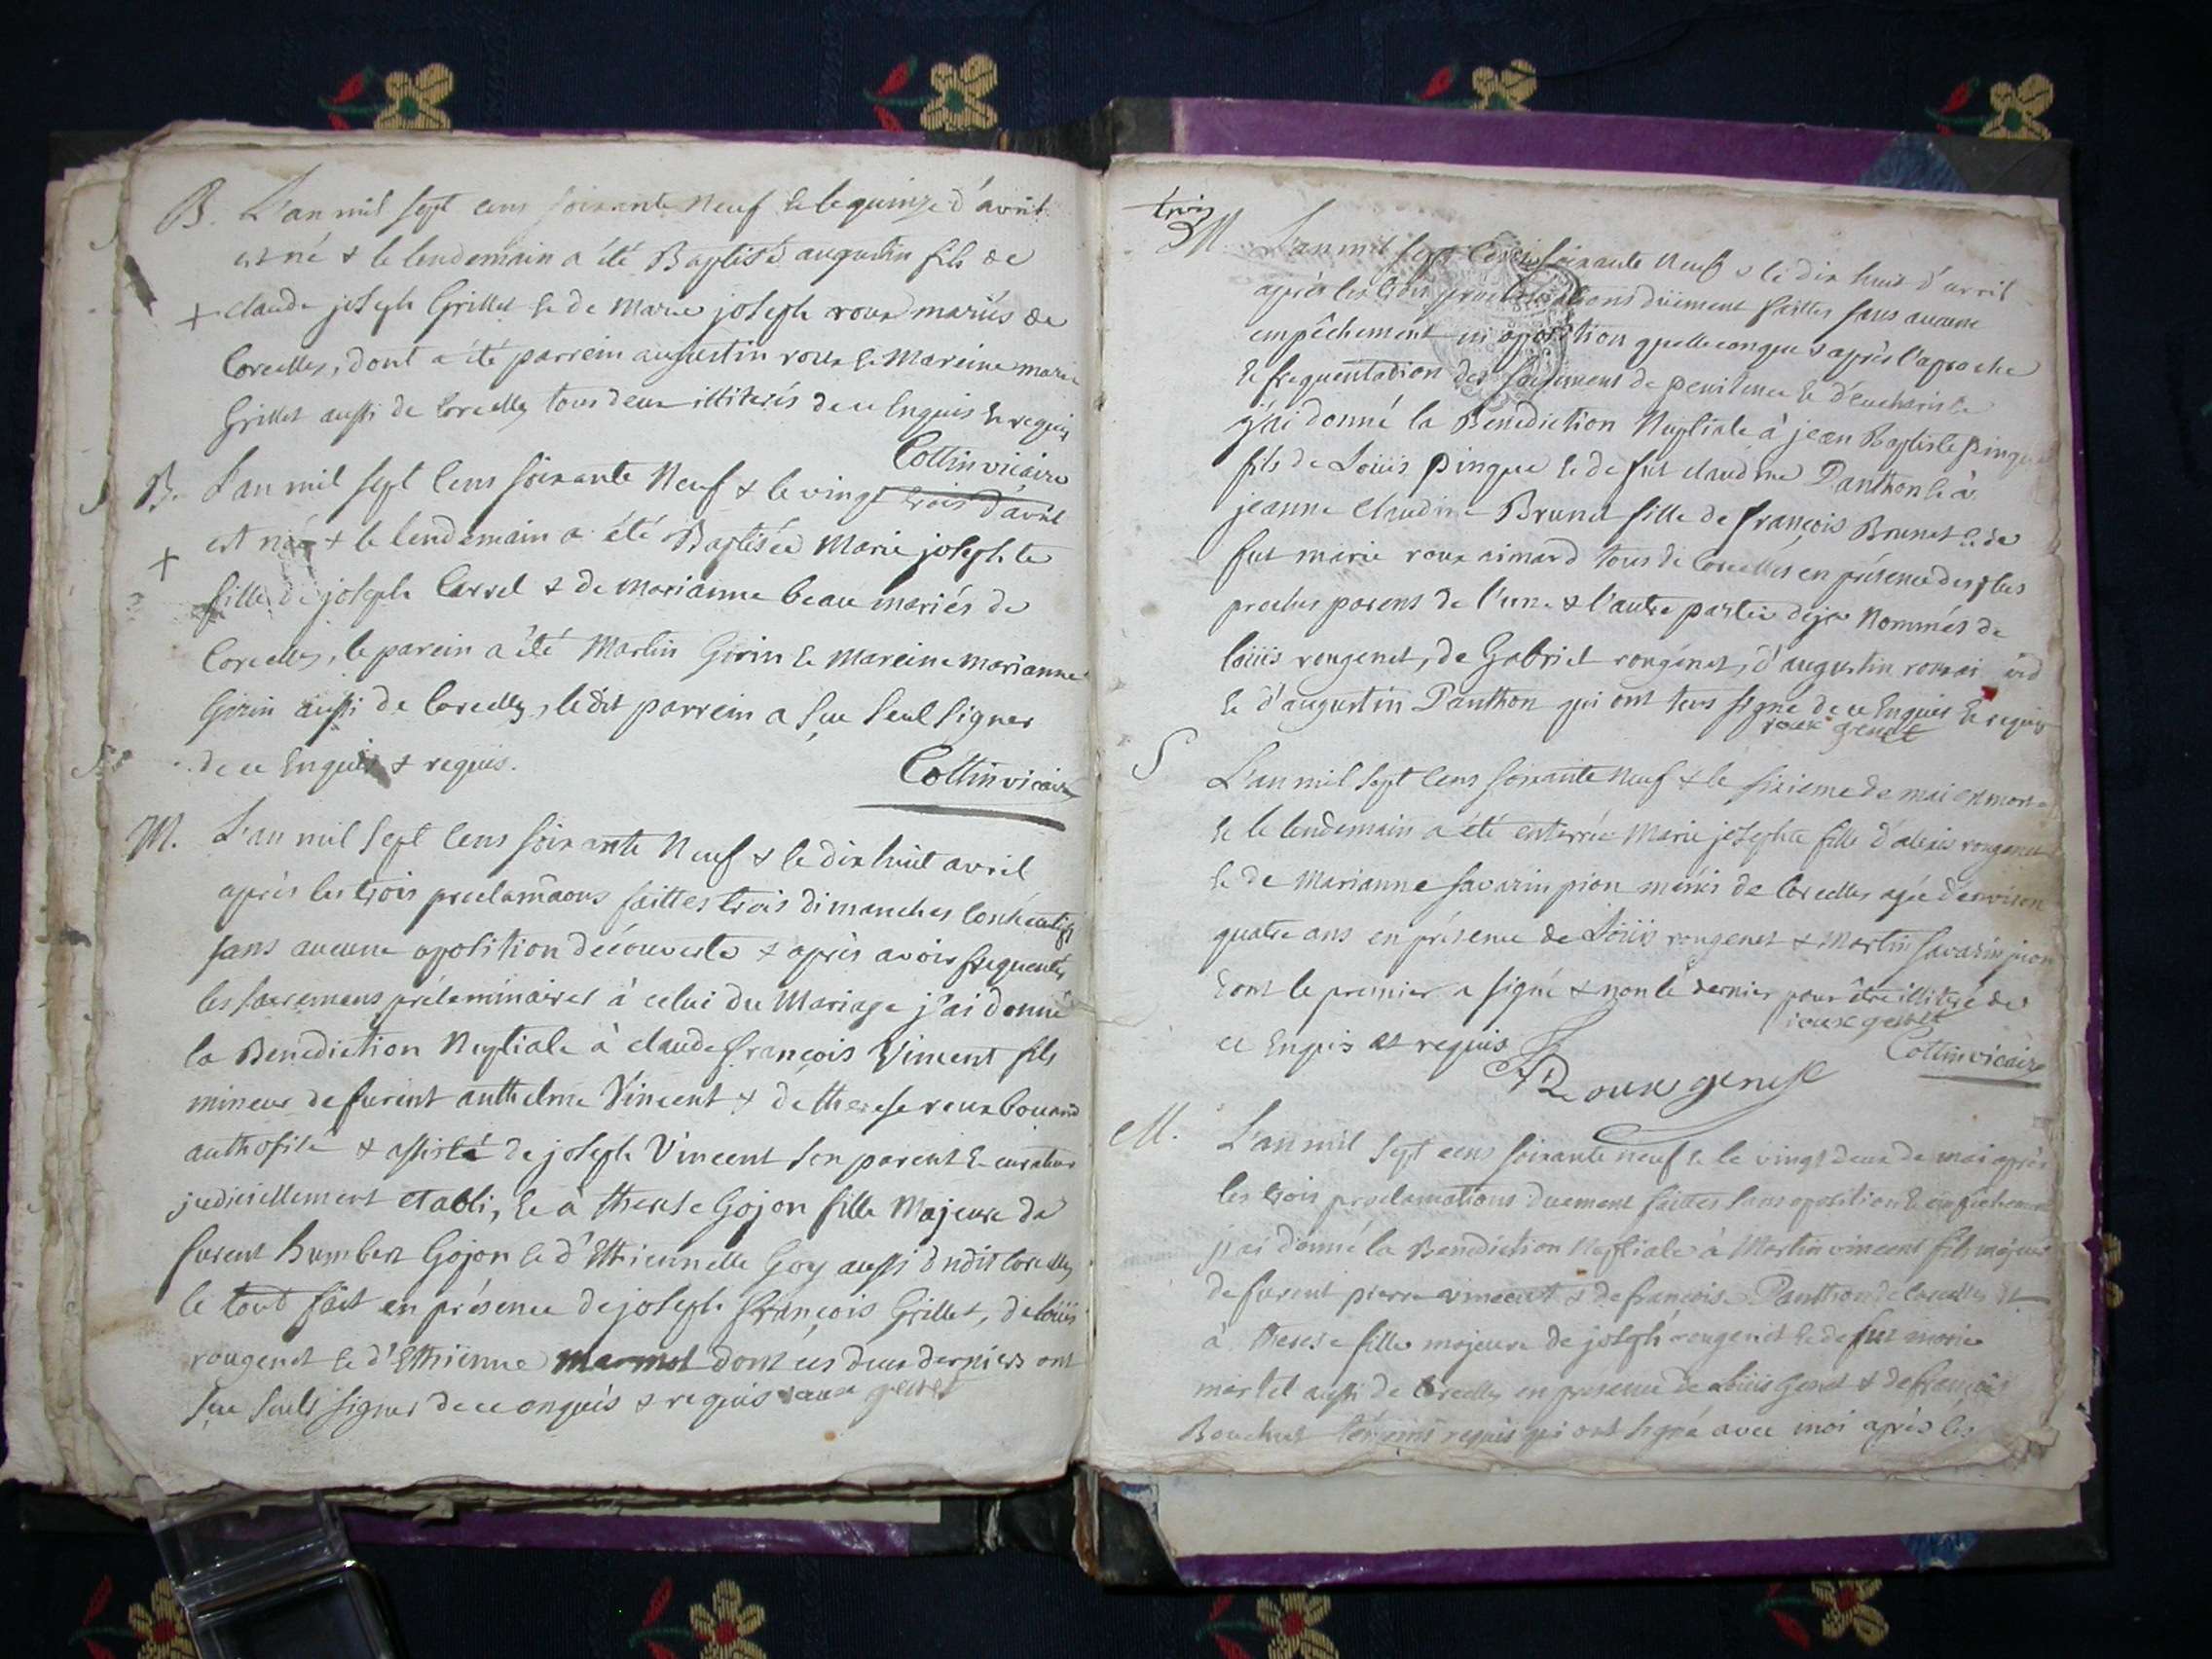 B. L'an mil sept cens soixante neuf & le quinze d'avril
est né & le lendemain a été Baptisé augustin fils de
+ claude joseph Grillet & de Marie joseph roux mariés de
Corcelles, dont a été parrein augustin roux & Mareine marie
Grillet aussi de Corcelles tous deux illiterés de ce Enquis & requis
Collin vicaire
B. L'an mil sept cens soixante Neuf & le vingt trois d'avril
est née & le lendemain a été Baptisée Marie josephte
+ fille de joseph Carrel & de marianne beau mariés de
Corcelles, le parein a été Martin Girin & Mareine marianne
Girin aussi de Corcelles, ledit parrein a sçu seul signer
de ce Enquis & requis.
Collin vicaire
M. L'an mil sept cens soixante Neuf & le dix huit avril
après les trois proclamãons faittes trois dimanches consécutifs
sans aucune oposition découverte & après avoir frequentés
les sacremens préleminaires à celui du Mariage j'ai donné
la Benediction Nuptiale à claude françois Vincent fils
mineur de furent anthelme Vincent & de therese roux bouard
authorisé & assisté de joseph Vincent son parent & curateur
judiciellement etabli, & à therese Gojon fille Majeure de
furent humbert Gojon & d'Ethiennette Goy aussi dudit Corcelles
le tout fait en présence de joseph françois Grillet, de loüis
rougenet & d'Ethienne marmot dont ces deux derniers ont
sçu seuls signer de ce enquis & requis roux genet
trois
M. L'an mil sept cens soixante Neuf & le dix huit d'avril
après les trois proclamations düement faittes sans aucune
empêchement ni oposition quelle conque & après l'aproche
& frequentation des sacremens de penitence & d'eucharistie
j'ai donné la Benediction Nuptiale à jean Baptiste pingue
fils de Loüis pingue & de fut claudine Panthon & à
jeanne claudine Brunet fille de françois Brunet & de
fut marie roux aimard tous de Corcelles en présence des plus
proches parens de l'une & l'autre partie deja Nommés de
loüis rougenet, de Gabriel rougenet, d'augustin
& d'augustin Panthon qui ont tous signé de ce Enquis & requis
roux genet
S L'an mil sept cens soixante neuf & le sixieme de mai est morte
& le lendemain a été enterrée Marie josephte fille d'alexis rougenet
& de Marianne savarin pion mariés de Corcelles agée d'environ
quatre ans en présence de Loüis rougenet & Martin savarin pion
dont le premier a signé & non le dernier pour être illiteré de
ce Enquis et requis roux genet
Collin vicaire
Roux genest
M. L'an mil sept cens soixante neuf & le vingt deux de mai après
les trois proclamations duement faittes sans oposition & empechement
j'ai donné la Benediction Nuptiale à Martin vincent fils majeur
de furent pierre vincent & de françoise Panthon de Corcelles et
à therese fille majeure de joseph rougenet & de fut marie
martel aussi de Corcelles en presence de Loüis Genet & de françois
Bouchut témoins requis qui ont signé avec moi après les